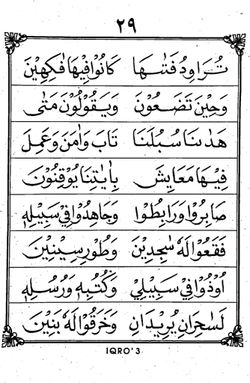 ٢٩
تُرَاوِدُ فَتٰىهَا كَانُوْا فِيْهَا فٰكِهِيْنَ
وَحِيْنَ تَضَعُوْنَ وَيَقُوْلُوْنَ مَتٰى
هَدٰىنَا سُبُلَنَا تَابَ وَاٰمَنَ وَعَمِلَ
فِيْهَا مَعَايِشَ بِاٰيٰتِنَا يُوْقِنُوْنَ
صَابِرُوْا وَرَابِطُوْا وَجَاهَدُوْا فِيْ سَبِيْلِهٖ
فَقَعُوْا لَهٗ سٰجِدِيْنَ وَطُوْرِ سِيْنِيْنَ
اُوْذُوْا فِيْ سَبِيْلِيْ وَكُتُبِهٖ وَرُسُلِهٖ
لَسٰحِرَانِ يُرِيْدَانِ وَخَرَقُوْا لَهٗ بَنِيْنَ
IQRO'3